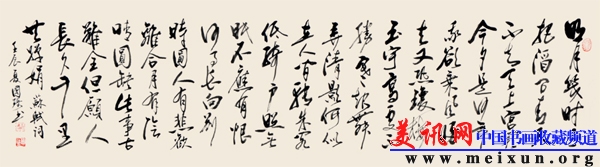 明月幾时有
把酒问青天
不知天上宫阙
今夕是何年
我欲乘风归
去又恐琼楼
玉宇高处不
勝寒起舞
弄清影何似
在人间转朱阁
低绮户照无
眠不应有恨
何事长向别
时圆人有悲欢
離合月有阴
晴圆缺此事古
難全但愿人
長久千里
共婵娟 蘇轼词
美讯网
中国书画收藏频道
www.meixun.org